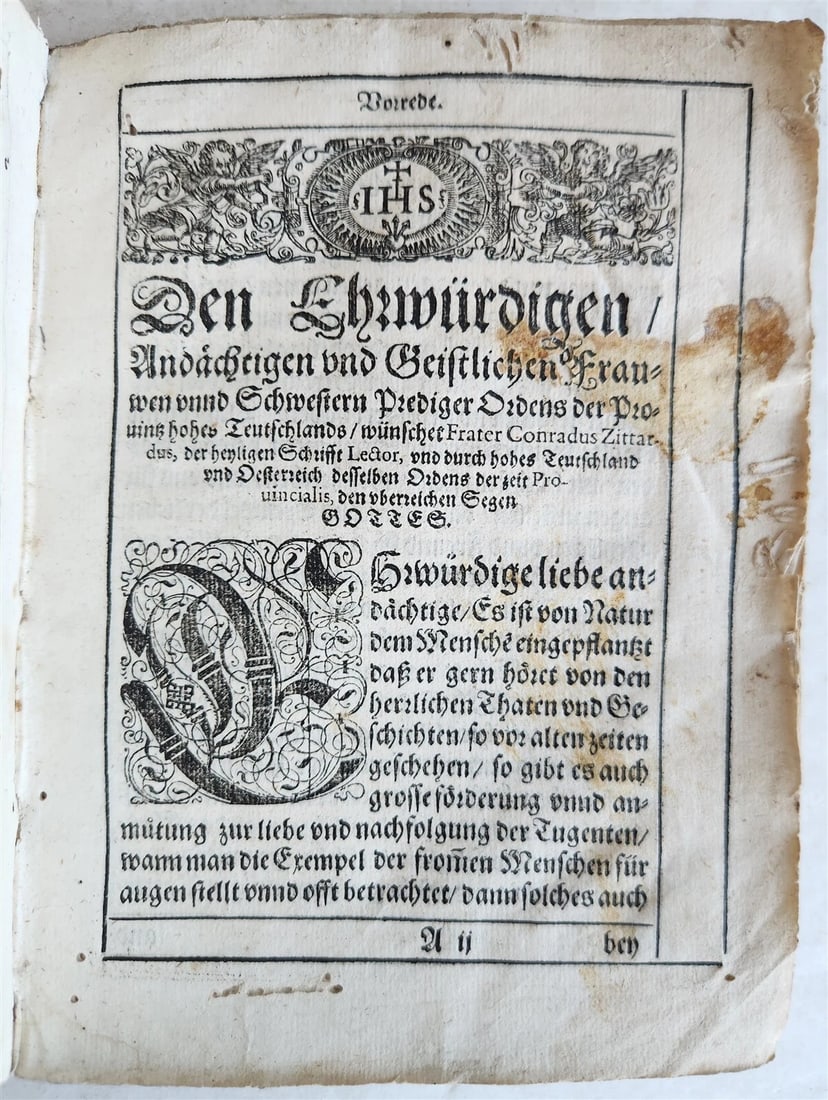 Vorrede.
IHS
Den Ehrwürdigen /
Andächtigen vnd Geistlichen Frau-
wen vnnd Schwestern Prediger Ordens der Pro-
uintz hohes Teutschlands / wünschet Frater Conradus Zittar-
dus, der heyligen Schrifft Lector, vnd durch hohes Teutschland
vnd Oesterreich desselben Ordens der zeit Pro-
uincialis, den vberreichen Segen
GOTTES.
EHrwürdige liebe an-
dächtige / Es ist von Natur
dem Menschē eingepflantzt
daß er gern höret von den
herrlichen Thaten vnd Ge-
schichten / so vor alten zeiten
geschehen / so gibt es auch
grosse förderung vnnd an-
mütung zur liebe vnd nachfolgung der Tugenten /
wann man die Exempel der from̄en Menschen für
augen stellt vnnd offt betrachtet / dann solches auch
A ij bey